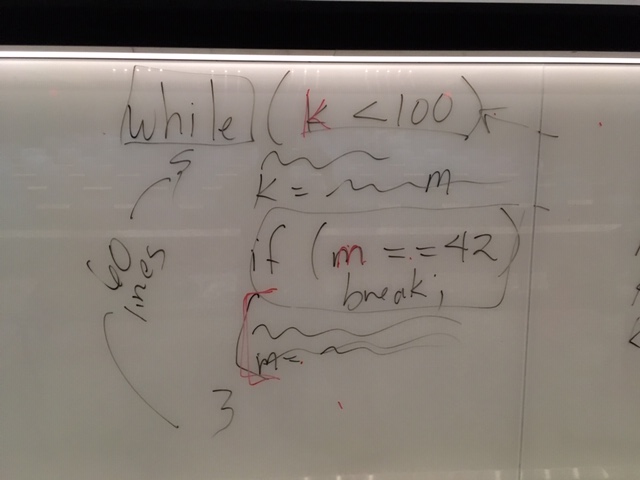 while (k < 100)
{
k = m
if (m == 42)
break;
m =
}
60
lines